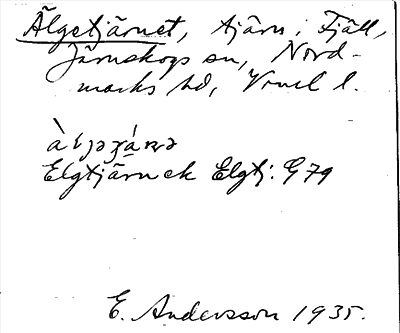 Älgetjärnet, tjärn i Fjäll,
Järnskogs sn, Nord-
marks hd, Vrml l.
Elgtjärn ek Elgtj: G 79
E. Andersson 1935.